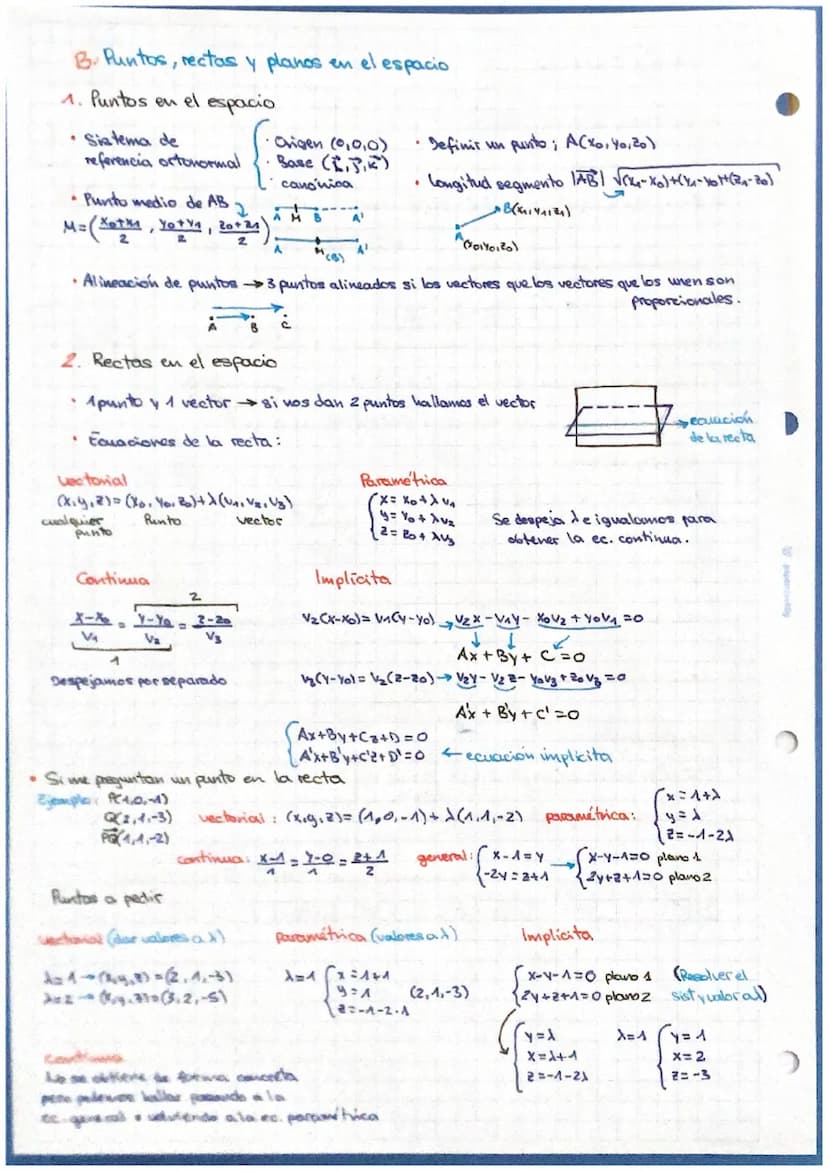 B. Puntos, rectas y planos en el espacio
1. Puntos en el espacio
• Sistema de referencia ortonormal { · Origen (0,0,0) · Base (i, j, k) · canónica
• Definir un punto; A(x₀, y₀, z₀)
• Longitud segmento |AB| √(x₁-x₀)+(y₁-y₀)+(z₁-z₀)²
B(x₁, y₁, z₁)
A (x₀, y₀, z₀)
• Punto medio de AB
M = (x₀+x₁/2, y₀+y₁/2, z₀+z₁/2)
A M B A'
A M (B) A'
• Alineación de puntos → 3 puntos alineados si los vectores que los vectores que los unen son
proporcionales.
A B C
2. Rectas en el espacio
• 1 punto y 1 vector → si nos dan 2 puntos hallamos el vector
→ ecuación
de la recta
• Ecuaciones de la recta:
Vectorial
(x,y,z) = (x₀, y₀, z₀)+λ(v₁, v₂, v₃)
cualquier punto Punto vector
Paramétrica
{ x = x₀+λv₁
y = y₀+λv₂
z = z₀+λv₃
Se despeja λ e igualamos para
obtener la ec. continua.
Continua
2
x-x₀/v₁ = y-y₀/v₂ = z-z₀/v₃
1
Despejamos por separado
Implícita
v₂(x-x₀) = v₁(y-y₀) → v₂x-v₁y-x₀v₂+y₀v₁=0
Ax+By+C=0
v₃(y-y₀) = v₂(z-z₀) → v₃y-v₂z-y₀v₃+z₀v₂=0
A'x+B'y+C'=0
{ Ax+By+Cz+D=0
A'x+B'y+C'z+D'=0 ← ecuación implícita
• Si me preguntan un punto en la recta
Ejemplo: P(1,0,-1)
Q(2,1,-3)
PQ(1,1,-2)
vectorial: (x,y,z) = (1,0,-1)+λ(1,1,-2)
paramétrica: { x=1+λ
y=λ
z=-1-2λ
continua: x-1/1 = y-0/1 = z+1/2
general: { x-1=y
-2y=z+1
→ { x-y-1=0 plano 1
2y+z+1=0 plano 2
Puntos a pedir
vectorial (dar valores a λ)
λ=1 → (x,y,z)=(2,1,-3)
λ=2 → (x,y,z)=(3,2,-5)
paramétrica (valores a λ)
λ=1 { x=1+1
y=1
z=-1-2·1
(2,1,-3)
Implícita
{ x-y-1=0 plano 1
2y+z+1=0 plano 2
(Resolver el
sist y valor a λ)
{ y=λ
x=λ+1
z=-1-2λ
λ=1 { y=1
x=2
z=-3
Continua
No se obtiene de forma concreta
pero podemos hallar pasando a la
ec. general o volviendo a la ec. paramétrica